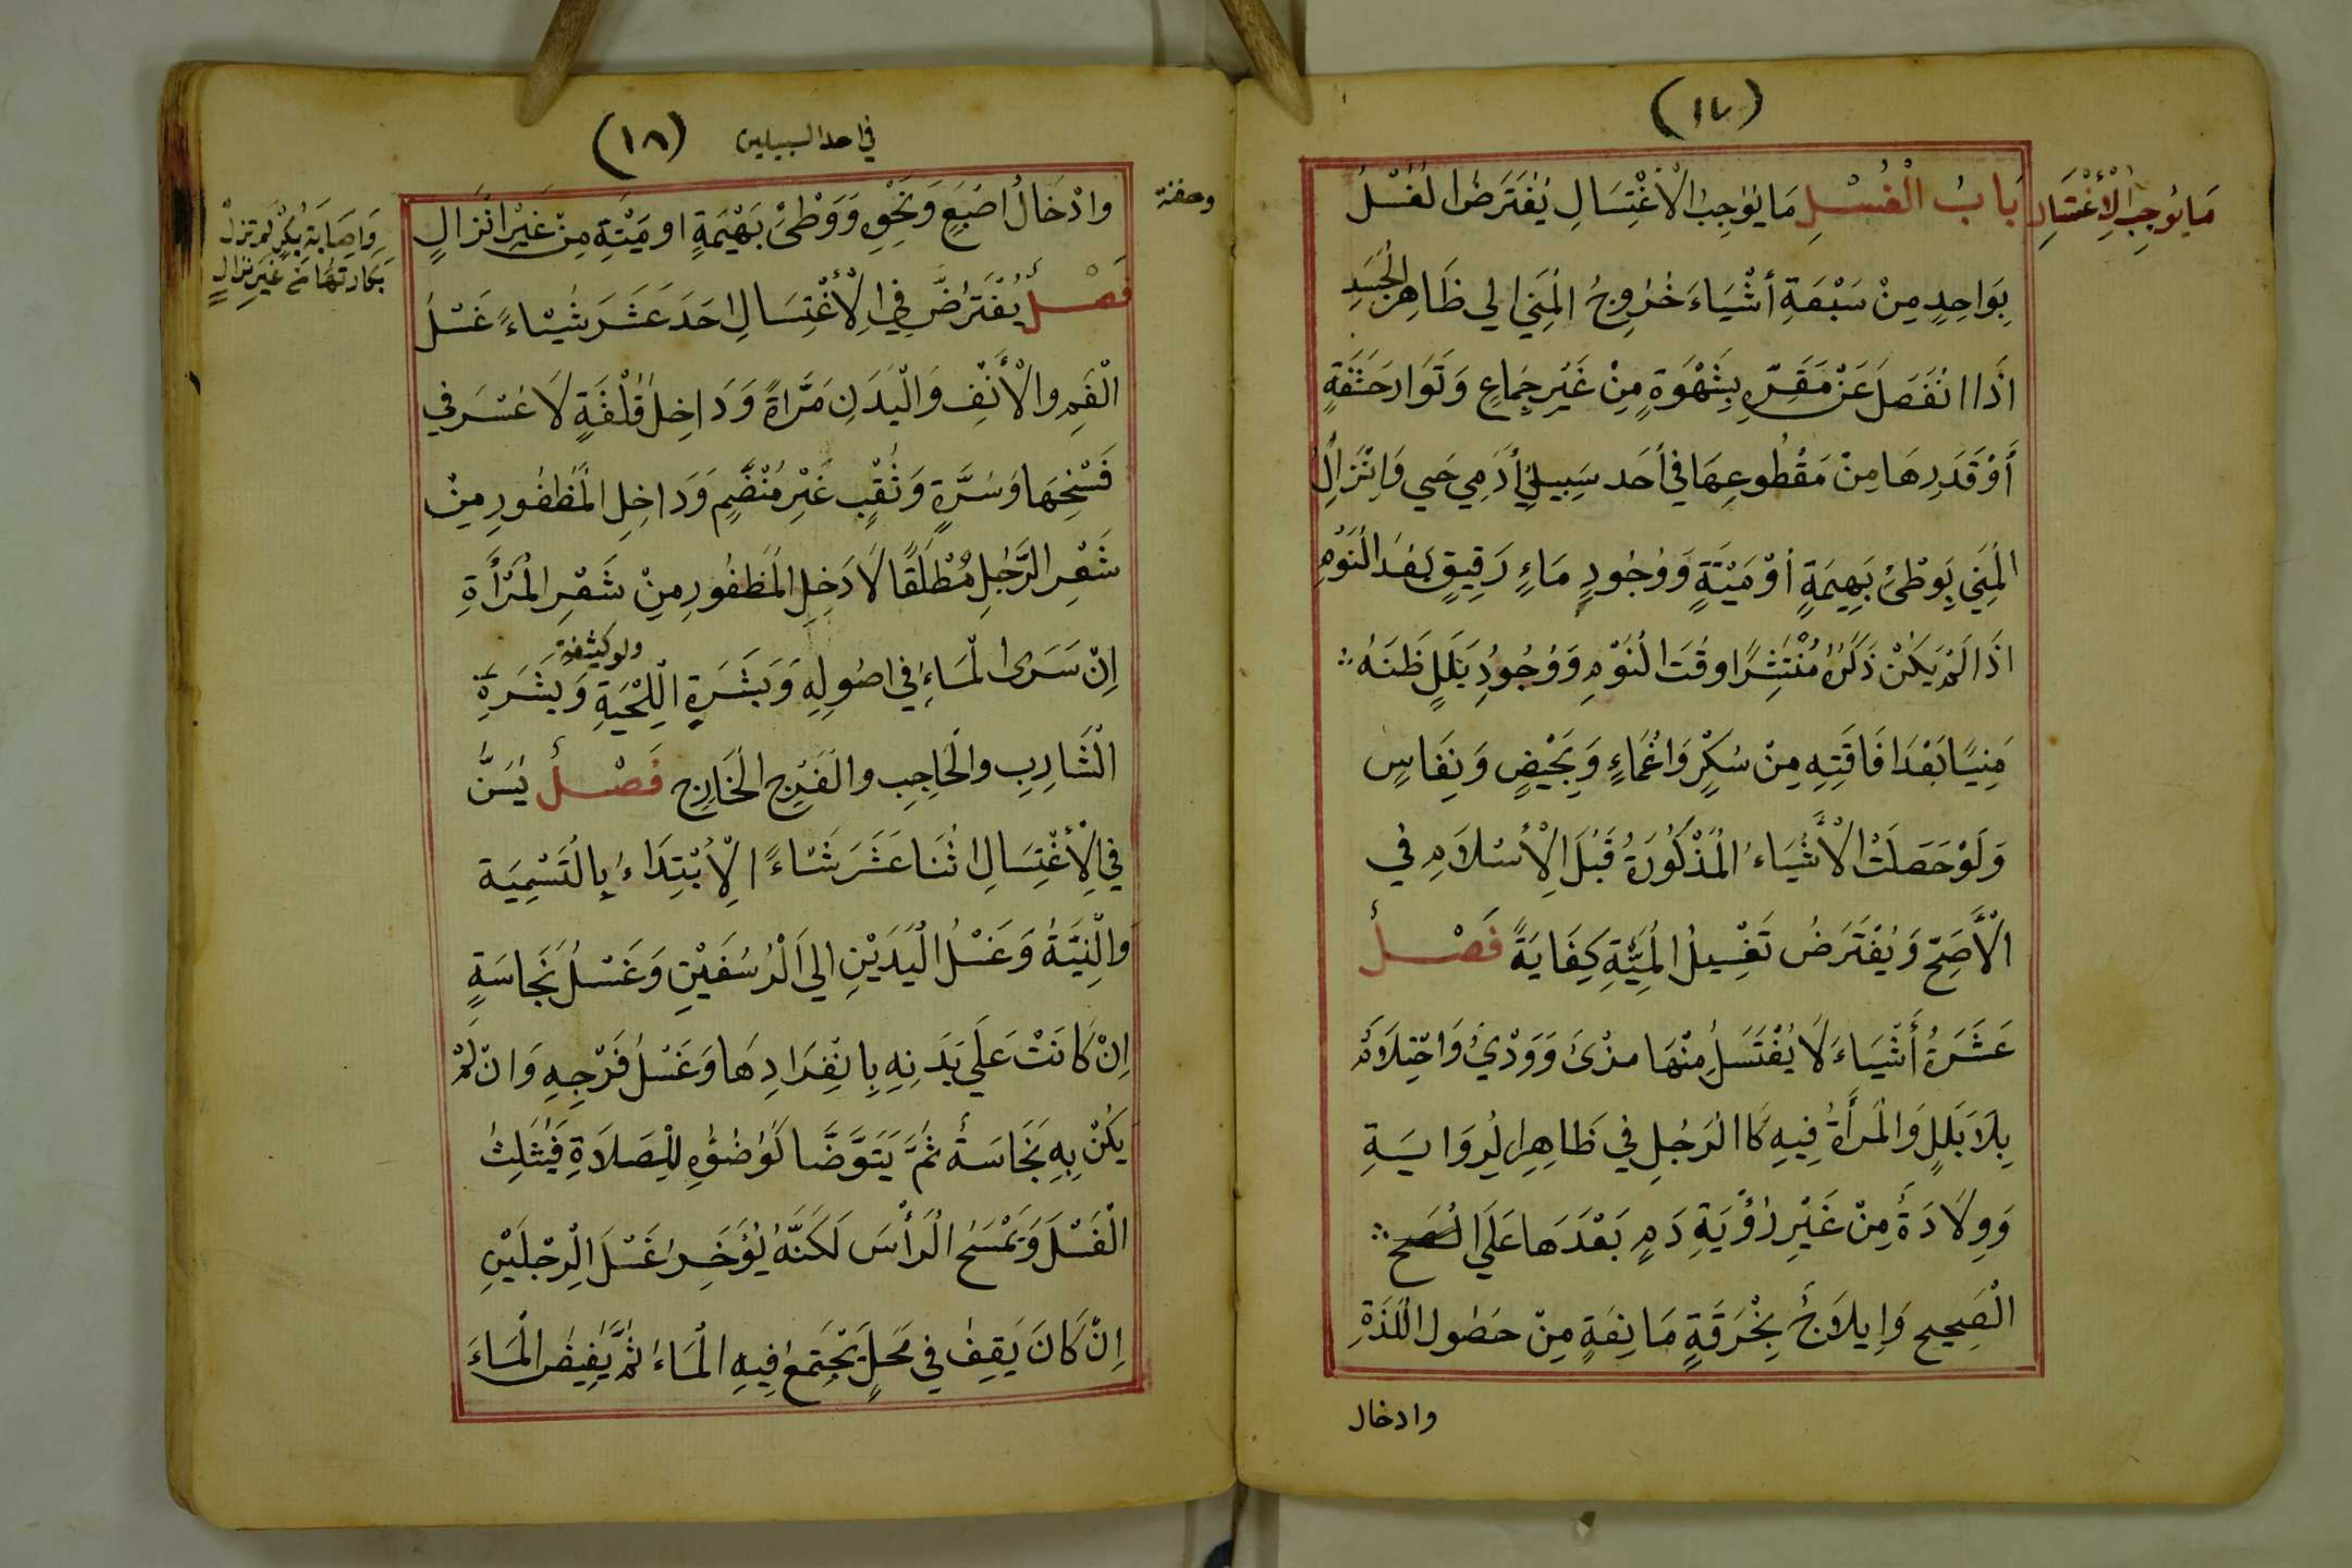 (١٧)
مَا يُوجِبُ الْأِغْتِسَالِ
بَابُ الْغُسْلِ مَا يُوجِبُ الْأغْتِسَالِ يُفْتَرَضُ الغُسْلُ
بِوَاحِدٍ مِنْ سَبْعَةِ أشْيَاءَ خُرُوجُ المَنِي الي ظَاهِرِ الجَسَدِ
اذَا انْفَصَلَ عَنْ مَقَرِّهِ بِشَهْوَةٍ مِنْ غَيْرِ جِمَاعٍ وَتَوَارَ حَشَفَةٍ
أوْ قَدَرِهَا مِنْ مَقْطُوعِهَا في أحَد سَبِيلِي أدَمِي حَي وَاِنْزَالُ
المَنِي بِوَطْئِ بَهِيمَةٍ أوْ مَيْتَةٍ وَوُجُودِ مَاءٍ رَقِيقٍ بَعْدَ النَوْمِ
اذَا لَمْ يَكُنْ ذَكَرُهُ مُنْتَشِرًا وقْتَ النَوْمِ وَوُجُودِ بَلَلٍ ظَنَهُ
مَنِيًا بَعْدَ افَاقَتِهِ مِنْ سُكْرٍ وَاغْمَاءٍ وَبِحَيْضٍ وَنِفَاسٍ
وَلَوْ حَصَلَتْ الْأشْيَاءُ المَذْكُورَةُ قَبْلَ الْأسْلَامِ في
الْأَصَحِّ وَيُفْتَرَضُ تَغْسِيلُ المَيِّتِ كِفَايَةً فَصْلٌ
عَشَرَةُ أَشْيَاءَ لَا يُغْتَسَلُ مِنْهَا مذْىٌ وَوَدْيٌ وَاحْتِلَامٌ
بِلَا بَلَلٍ وَالمَرأَةُ فِيهِ كَاالرَجُلِ في ظَاهِرِ الرِوَايَةِ
وَوِلَادَةٌ مِنْ غَيْرِ رُؤْيَةِ دَمٍ بَعْدَهَا عَلَى
الْصَحِيحِ وَإِيلَاجٌ بِخْرقَةٍ مَانِعَةٍ مِنْ حصُول اللَذَةِ
وادخال
(١٨)
في احد السبيلين
وحقنة
وادْخَالُ اصْبَعٍ وَنَحْوِهِ وَوَطْئُ بَهْيمَةٍ او مَيْتَةٍ مِنْ غَيْرِ انْزَالٍ
وَاِصَابَةِ بِكْرٍ لَم تزلْ
بكَارتهَا مَن غَيرِ نزَالٍ
فَصْلٌ يُفْتَرَضُ فِي الْأغْتِسَالِ احَدَ عَشَرَ شَيْاءً غَسْلُ
الْفَمِ والْأنْفِ وَالْبَدَنِ مَرَّاةً وَدَاخِلُ قُلْفَةٍ لَا عُسْرَ في
فَسْخِهَا وَسُرَّةٍ وَثُقْبٍ غَيْرِ مُنْضَّمٍ وَدَاخِلِ المَظفُورِ مِنْ
شَعْرِ الرَّجُلِ مُطْلَقًا لَا دَخِلِ المَظفُورِ مِنْ شَعْرِ المَرْأَةِ
اِنْ سَرَى المَاءُ في اصُولِهِ وَبَشَرَةِ اللِّحْيَةِ وَبَشَرَةِ
ولو كثيفة
الْشَارِبِ والحَاجِبِ والفَرْجِ الخَارِجِ فَصْلٌ يُسَنُّ
في الْأغْتِسَالِ اثْنَا عَشَرَ شَيْاءً الِأبْتِدَاءُ بِالتَسْمِيَة
وَالْنِيَّةُ وَغَسْلُ الْيَدَيْنِ الي الْرُسْغَيْنِ وَغَسْلُ نَجَاسَةٍ
اِنْ كَانَتْ عَلَي بَدَنِهِ بِانْفِرَادِهَا وَغَسْلُ فَرْجِهِ وَانْ لَمْ
يَكُنْ بِهِ نَجَاسَةٌ ثُمَّ يَتَوَّضَّا كَوُضُوْءِهِ لِلصَلَاةِ فَيُثَلِثُ
الْغَسْلَ وَيَمْسَحُ الرَأْسَ لَكَنَّهُ يُؤَخِرُ غَسْلَ الِرجْلَيْنِ
اِنْ كَانَ يَقِفُ في مَحَلٍ يَجْتَمِعُ فِيهِ المَاءُ ثُمَّ يُفِيضُ المَاءَ